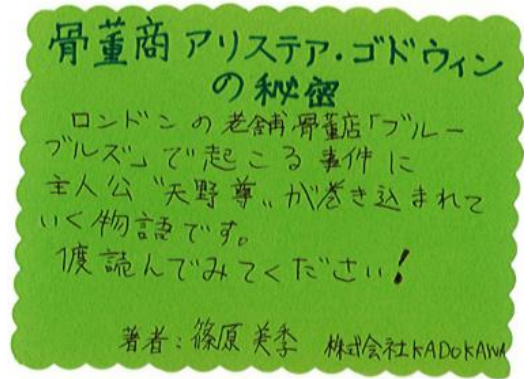 骨董商アリステア・ゴドウィン
の秘密
ロンドンの老舗骨董店「ブルー
ブルズ」で起こる事件に
主人公〝天野尊〟が巻き込まれて
いく物語です。
1度読んでみてください!
著者:篠原美季 株式会社KADOKAWA